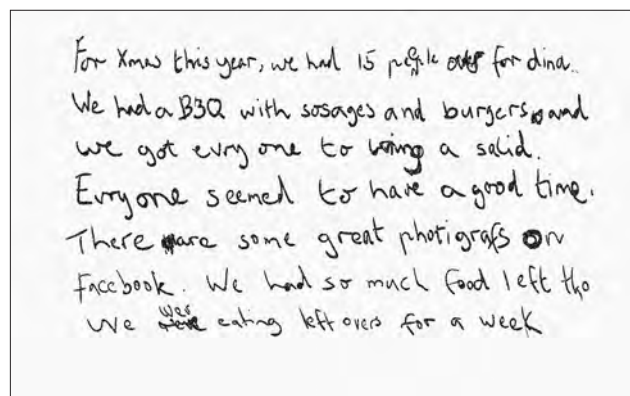 For Xmas this year, we had 15 people over for dina..
We had a B3Q with sosages and burgers and
we got evry one to bring a salid.
Evryone seemed to have a good time.
There are some great photigrafs on
Facebook. We had so much food left tho
we wer eating left overs for a week